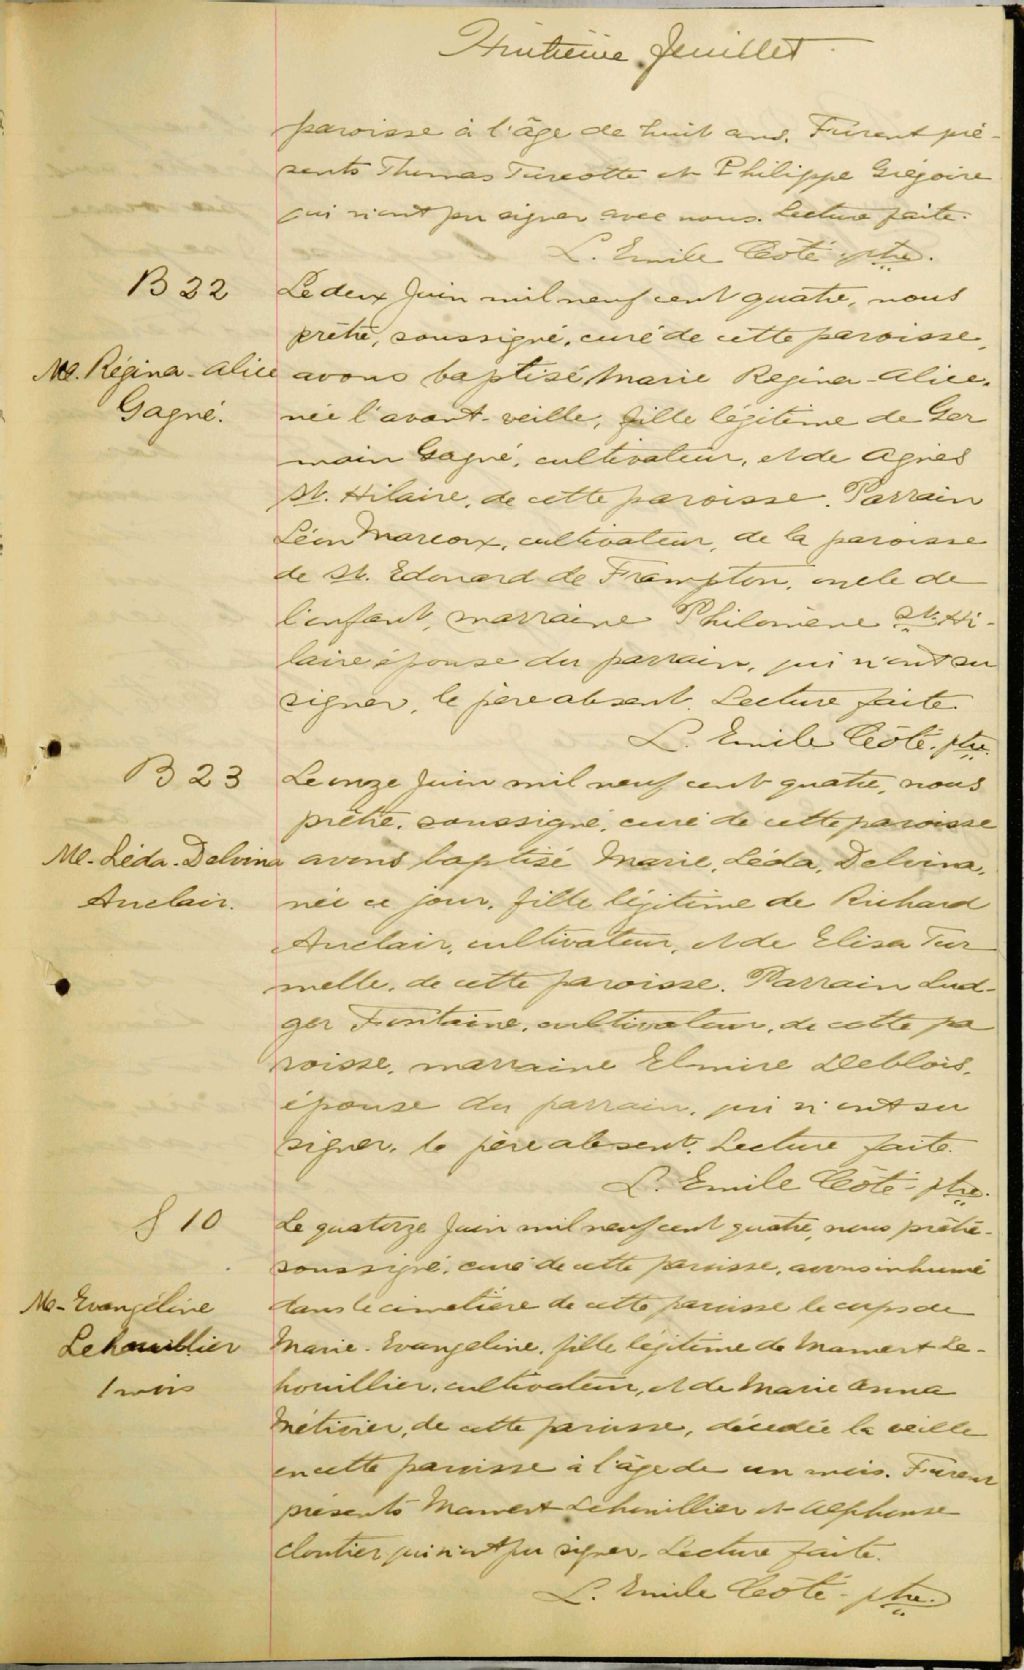 Huitième Feuillet
paroisse à l'âge de huit ans. Furent pré-
sents Thomas Turcotte et Philippe Grégoire
qui n'ont pu signer avec nous. Lecture faite.
L. Emile Côté ptre.
B 22
Le deux Juin mil neuf cent quatre, nous
prêtre, soussigné, curé de cette paroisse,
Me. Régina-Alice
avons baptisé, Marie Regina-Alice,
Gagné.
née l'avant-veille, fille légitime de Ger
main Gagné, cultivateur, et de Agnès
St. Hilaire, de cette paroisse. Parrain
Léon Marcoux, cultivateur, de la paroisse
de St. Edouard de Frampton, oncle de
l'enfant, marraine Philomène St. Hi-
laire épouse du parrain, qui n'ont su
signer, le père absent. Lecture faite
L. Emile Côté. ptre.
B 23
Le onze Juin mil neuf cent quatre, nous
prêtre, soussigné, curé de cette paroisse
Me-Léda-Delvina
avons baptisé Marie, Léda, Delvina,
Auclair.
née ce jour, fille légitime de Richard
Auclair, cultivateur, et de Elisa Tur
melle, de cette paroisse. Parrain Lud-
ger Fontaine, cultivateur, de cette pa
roisse, marraine Elmire Deblois,
épouse du parrain, qui n'ont su
signer, le père absent. Lecture faite.
L. Emile Côté - ptre.
S 10
Le quatorze Juin mil neuf cent quatre, nous prêtre-
soussigné, curé de cette paroisse, avons inhumé
Me-Evangéline
dans le cimetière de cette paroisse le corps de
Lehouillier
Marie-Evangeline, fille légitime de Mamert Le-
1 mois
houillier, cultivateur, et de Marie Anna
Métivier, de cette paroisse, décédée la veille
en cette paroisse à l'âge de un mois. Furent
présents Mamert Lehouillier et Alphonse
Cloutier qui n'ont pu signer. Lecture faite.
L. Emile Côté - ptre.